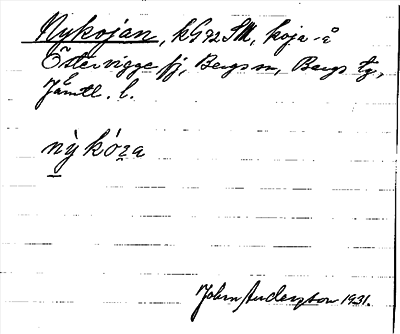 Nykojan, kG72SM, koja å
Östervigge fj, Bergs sn, Bergs tg,
Jämtl. l.
nỳ kóꞃa
John Anderzton 1931.